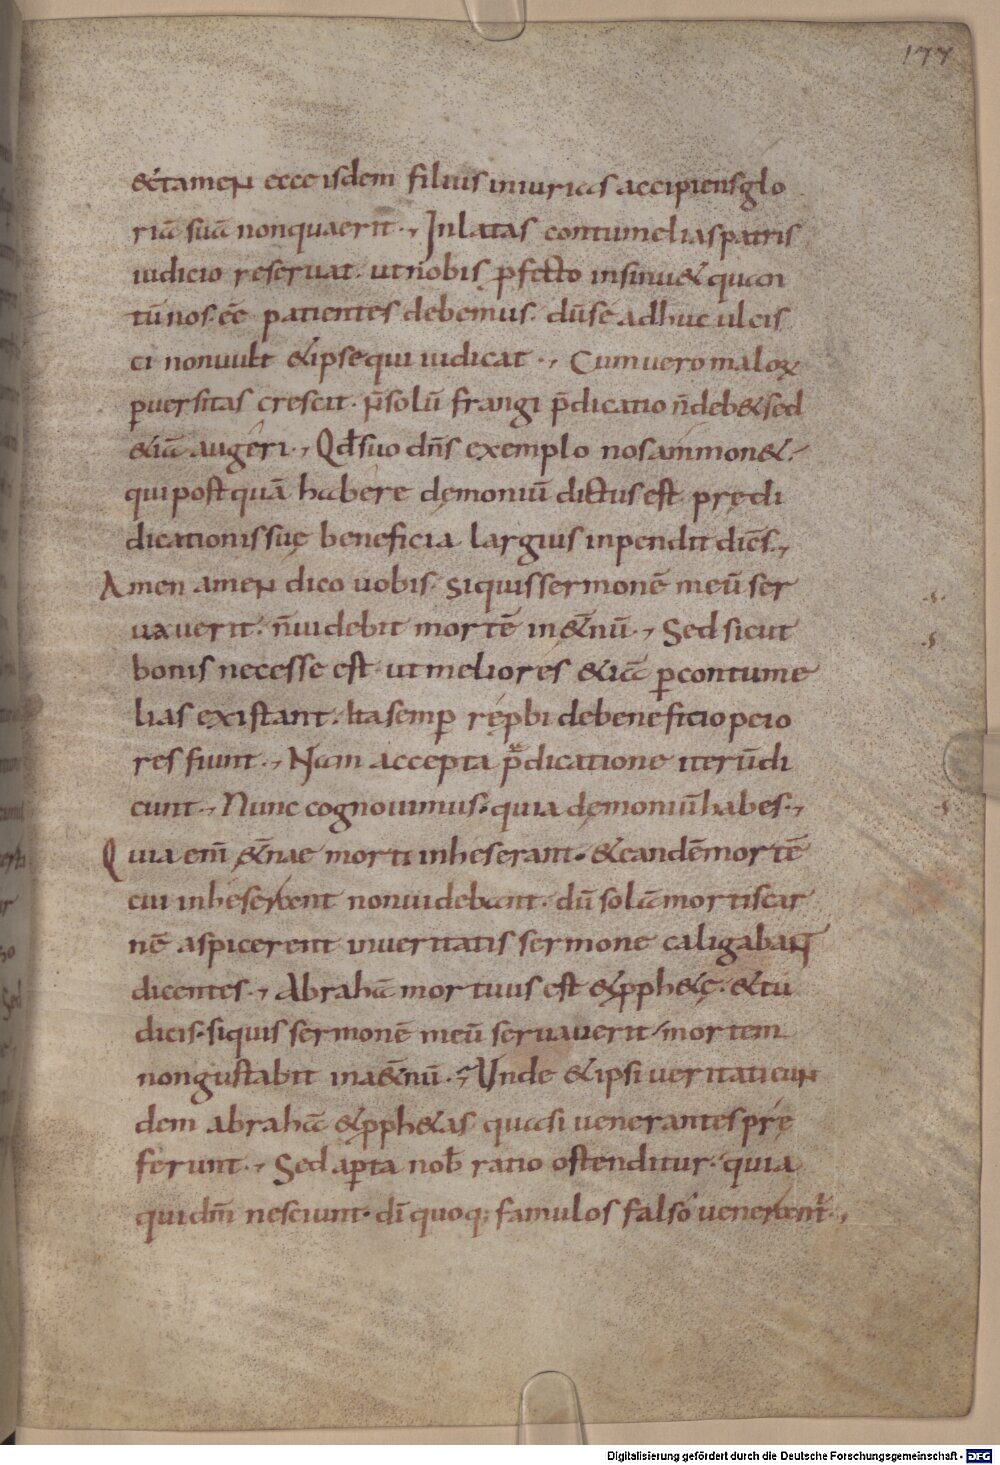 177
&tamen ecce isdem filius iniurias accipiens glo
riā suā non quaerit. Inlatas contumelias patris
iudicio reseruat. ut nobis ꝓfecto insinu& quan
tū nos. ēē patientes debemus. dū se adhuc ulcis
ci non uult &ipse qui iudicat. Cum uero maloꝝ
ꝑuersitas crescit. n̄ solū frangi p̄dicatio n̄ deb& sed
&iā augeri. Qđ suo dn̄s exemplo nos ammon&.
qui postquā habere dęmoniū dictus est prędi
dicationis suę beneficia largius inpendit dicēs.
Amen amen dico uobis. Siquis sermonē meū ser
uauerit. n̄ uidebit mortē in &n̄ū. Sed sicut
bonis necesse est ut meliores &iā ꝑ contume
lias existant. Ita semꝑ rępbi de beneficio peio
res fiunt. Nam accepta p̄dicatione iterū di
cunt. Nunc cognouimus. quia dęmoniū habes.
Quia enī &n̄ae morti inheserant. & eandē mortē
cui inheserant non uidebant. dū solā mortis car
nē aspicerent in ueritatis sermone caligabant
dicentes. Abrahā mortuus est &ꝓph&ę. &tu
dicis. siquis sermonē meū seruauerit mortem
non gustabit in a&n̄ū. Unde &ipsi ueritati eun
dem abrahā &ꝓph&as quasi uenerantes prę
ferunt. Sed aꝑta nob̄ ratio ostenditur. quia
qui dm̄ nesciunt. dī quoq; famulos falso uenerant̄.
Digitalisierung gefördert durch die Deutsche Forschungsgemeinschaft - DFG